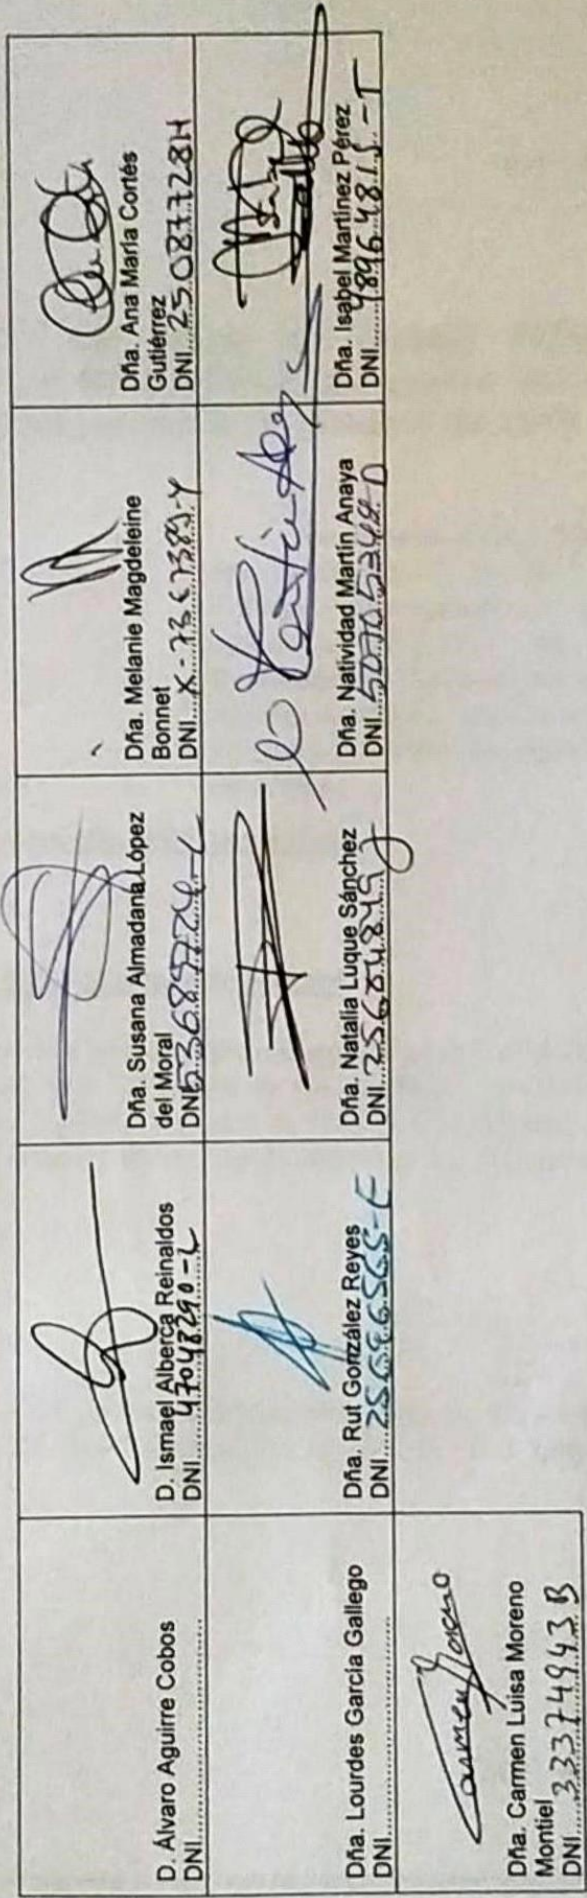 D. Álvaro Aguirre Cobos
DNI
D. Ismael Alberca Reinaldos
DNI 47048290-L
Dña. Susana Almadana López
del Moral
DNI
Dña. Melanie Magdeleine
Bonnet
DNI
Dña. Ana María Cortés
Gutiérrez
DNI 25087728H
Dña. Lourdes García Gallego
DNI
Dña. Rut González Reyes
DNI
Dña. Natalia Luque Sánchez
DNI
Dña. Natividad Martín Anaya
DNI
Dña. Isabel Martínez Pérez
DNI
Carmen Moreno
Dña. Carmen Luisa Moreno
Montiel
DNI 33374943B